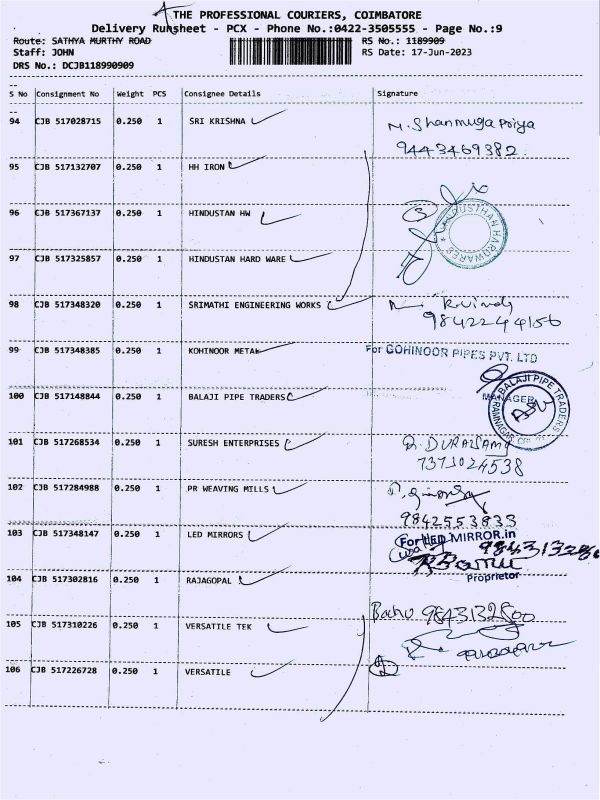 THE PROFESSIONAL COURIERS, COIMBATORE
Delivery Runsheet - PCX - Phone No.:0422-3505555 - Page No.:9
Route: SATHYA MURTHY ROAD
RS No.: 1189909
Staff: JOHN
RS Date: 17-Jun-2023
DRS No.: DCJB118990909
S No Consignment No Weight PCS Consignee Details Signature
94 CJB 517028715 0.250 1 SRI KRISHNA
M. Shanmuga Priya
9443469382
95 CJB 517132707 0.250 1 HH IRON
96 CJB 517367137 0.250 1 HINDUSTAN HW
97 CJB 517325857 0.250 1 HINDUSTAN HARD WARE
98 CJB 517348320 0.250 1 SRIMATHI ENGINEERING WORKS
9842244156
99 CJB 517348385 0.250 1 KOHINOOR METAL
For GOHINOOR PIPES PVT. LTD
MANAGER
100 CJB 517148844 0.250 1 BALAJI PIPE TRADERS
BALAJI PIPE TRADERS
101 CJB 517268534 0.250 1 SURESH ENTERPRISES
R. DURAISAMY
7373024538
102 CJB 517284988 0.250 1 PR WEAVING MILLS
9842553833
103 CJB 517348147 0.250 1 LED MIRRORS
For LED MIRROR.in
Proprietor
104 CJB 517302816 0.250 1 RAJAGOPAL
Babu 9843132800
105 CJB 517310226 0.250 1 VERSATILE TEK
106 CJB 517226728 0.250 1 VERSATILE